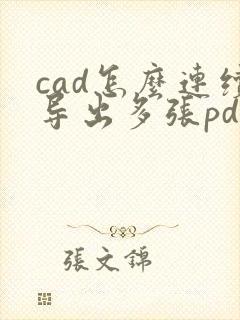 cad怎麽連续
导出多張pd
張文錦